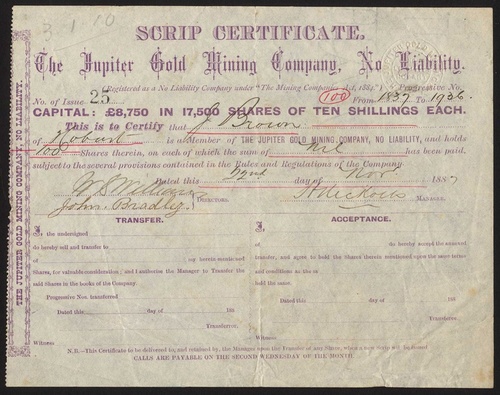 3-1-10
SCRIP CERTIFICATE.
The Jupiter Gold Mining Company, No Liability.
Registered as a No Liability Company under "The Mining Companies Act, 1884."
Progressive No.
No. of Issue 25 100 From 1837 To 1936.
CAPITAL: £8,750 IN 17,500 SHARES OF TEN SHILLINGS EACH.
This is to Certify that J Brown
of Hobart is a Member of THE JUPITER GOLD MINING COMPANY, NO LIABILITY, and holds
100 Shares therein, on each of which the sum of Nil has been paid,
subject to the several provisions contained in the Rules and Regulations of the Company.
Dated this 22nd day of Nov 1887
John Bradley DIRECTORS. MANAGER.
THE JUPITER GOLD MINING COMPANY, NO LIABILITY.
TRANSFER.
I the undersigned of
do hereby sell and transfer to
of my herein-mentioned
Shares, for valuable consideration; and I authorise the Manager to Transfer the
said Shares in the books of the Company.
Progressive Nos. transferred
Dated this day of 188
Transferror.
Witness
ACCEPTANCE.
I
of do hereby accept the annexed
transfer, and agree to hold the Shares therein mentioned upon the same terms
and conditions as the
held the same.
Dated this day of 188
Transferree.
Witness
N.B.—This Certificate to be delivered to, and retained by, the Manager upon the Transfer of any Share, when a new Scrip will be issued
CALLS ARE PAYABLE ON THE SECOND WEDNESDAY OF THE MONTH.